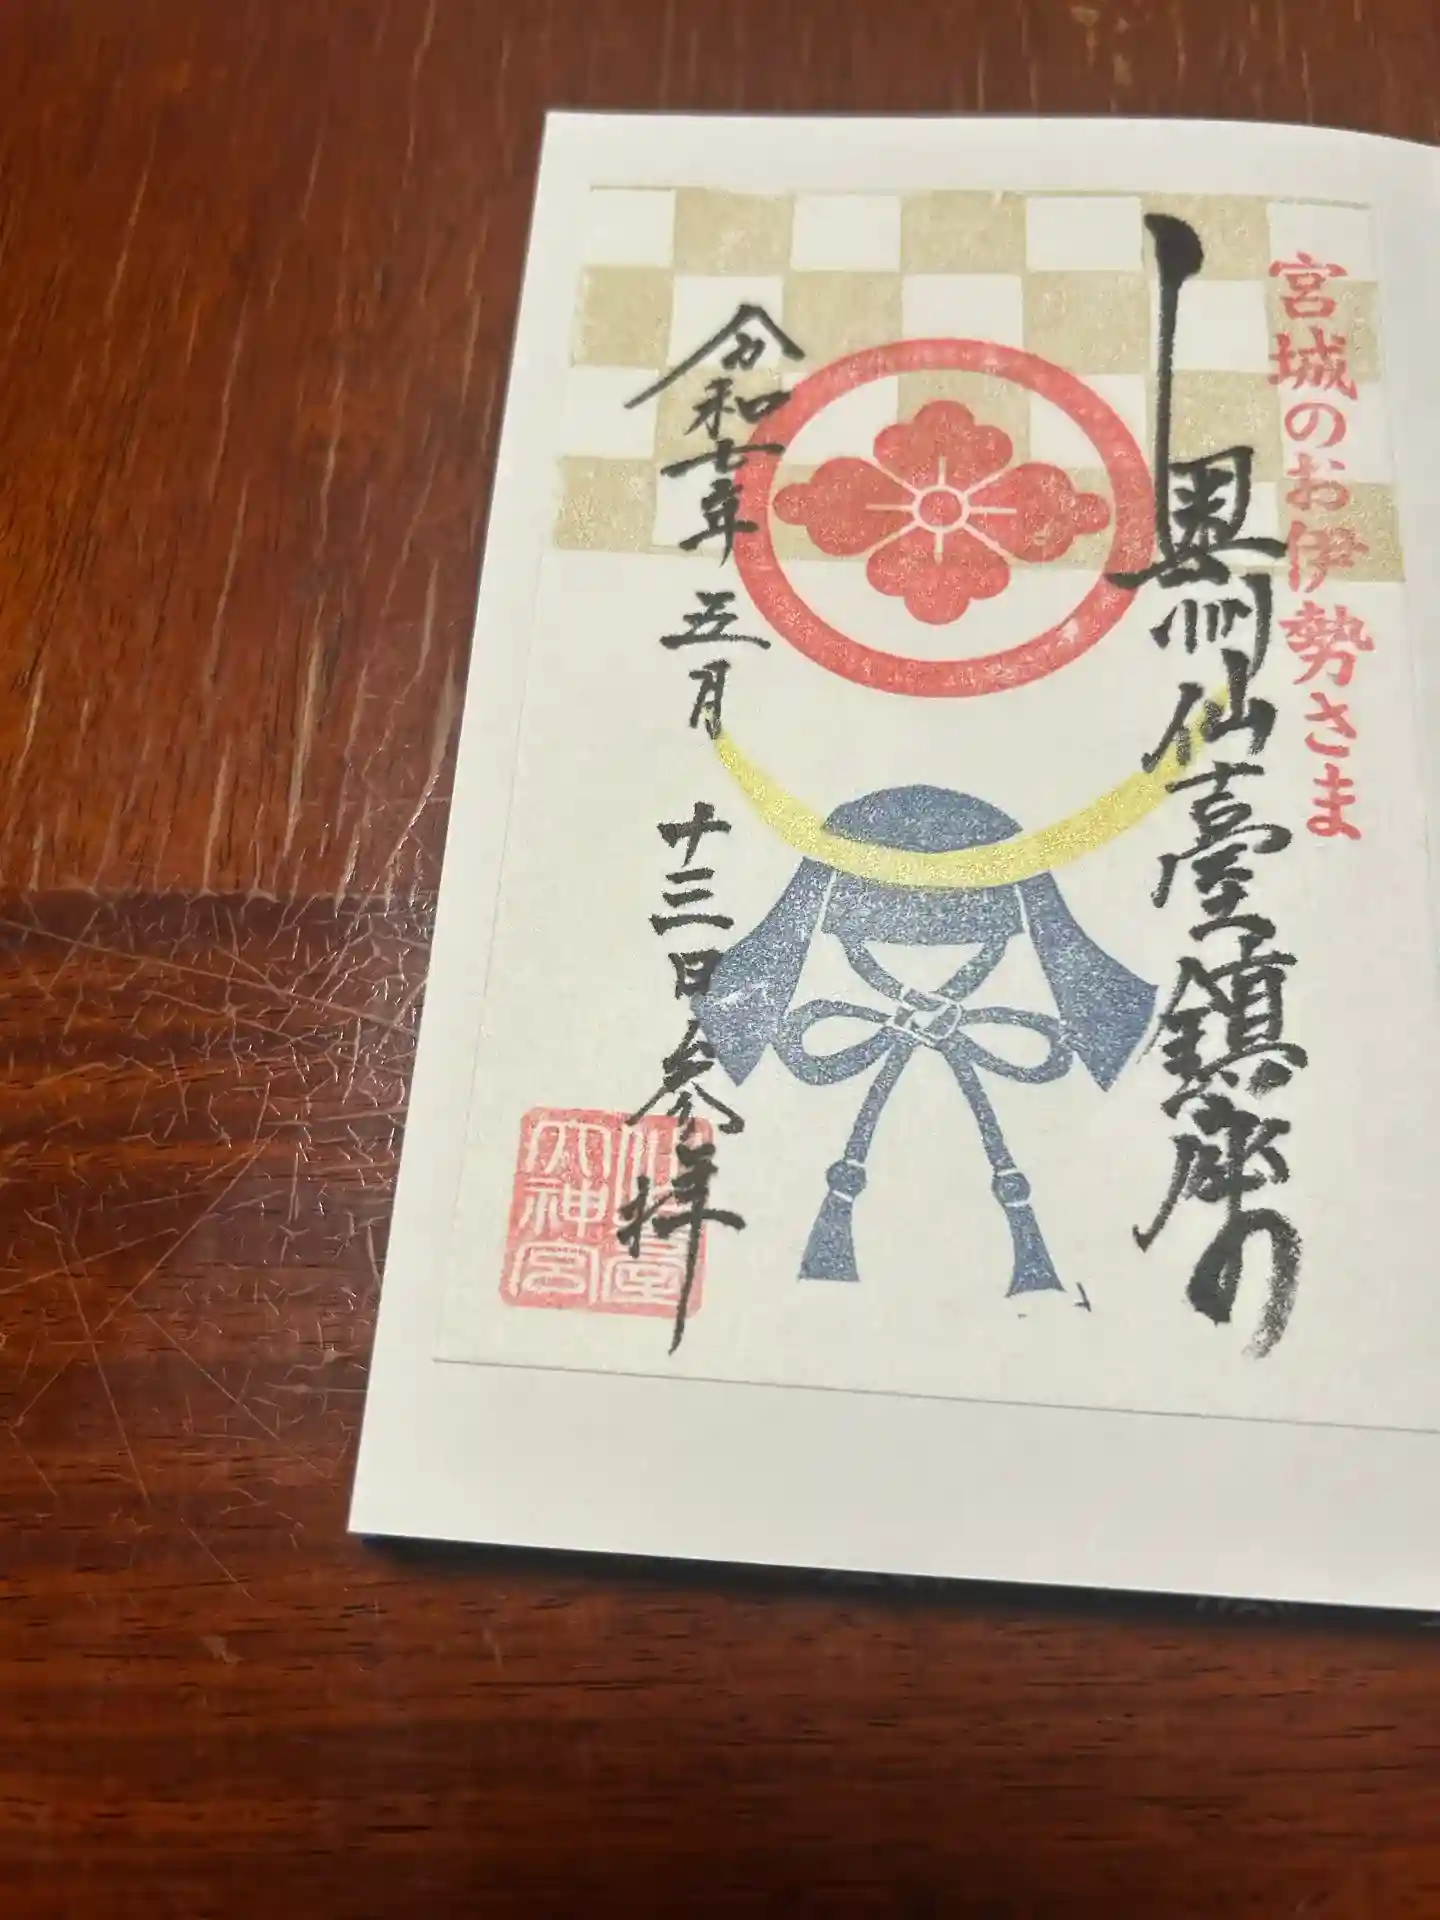 宮城のお伊勢さま
奥州仙臺鎮座
令和七年 五月 十三日参拝
仙臺
大神宮